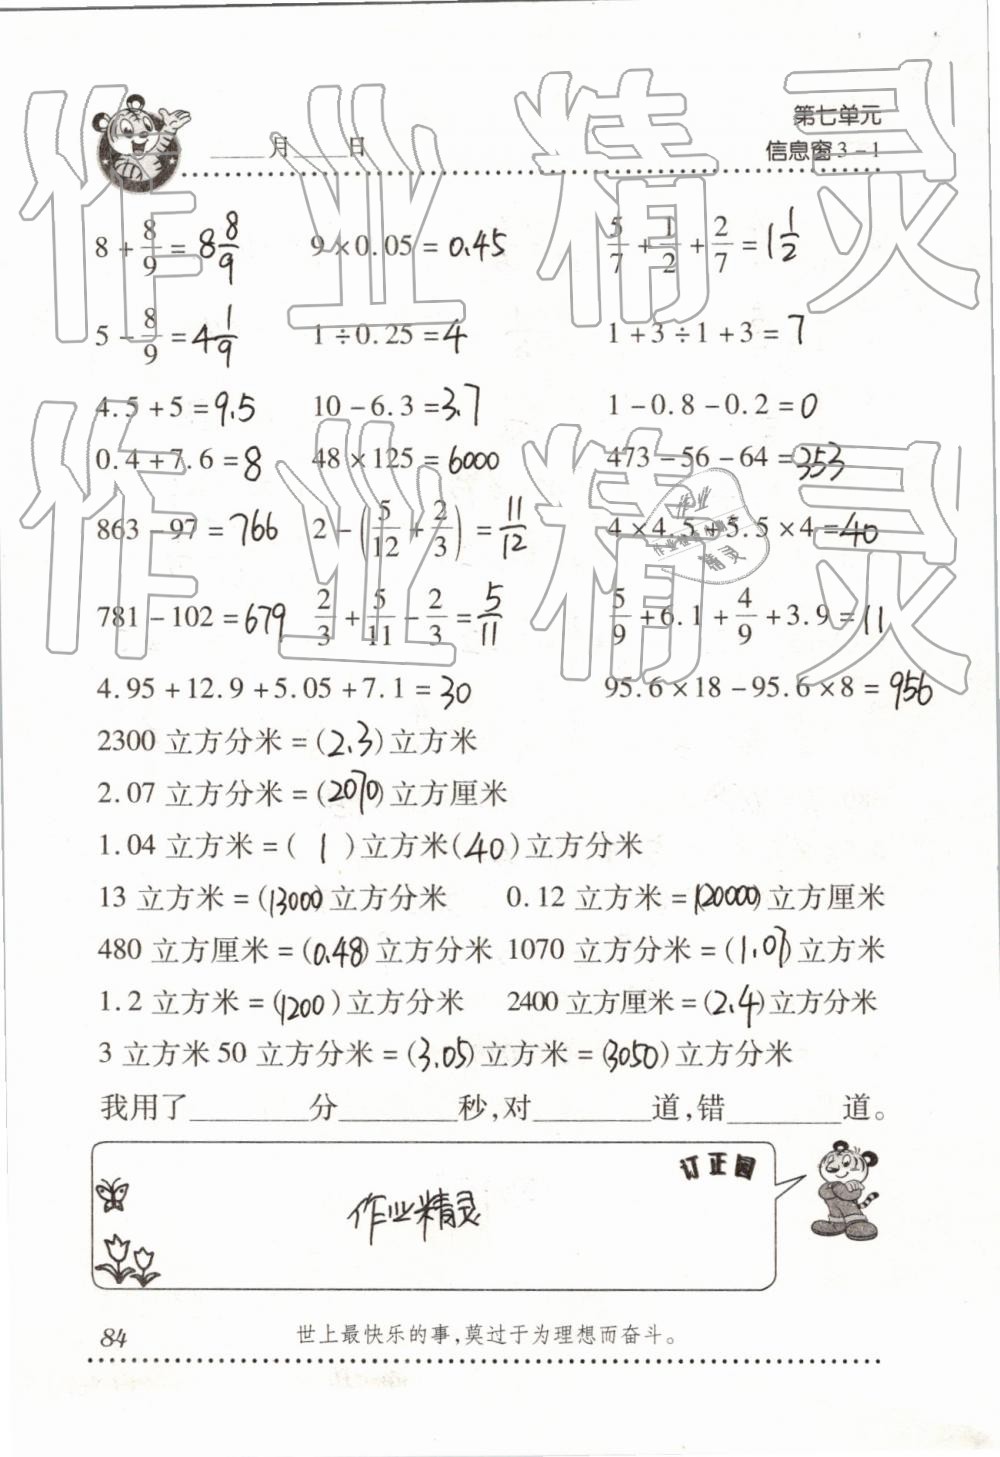 第七单元
____月____日 信息窗3-1
8 + 8/9 = 8 8/9 9×0.05 = 0.45 5/7 + 1/2 + 2/7 = 1 1/2
5 - 8/9 = 4 1/9 1÷0.25 = 4 1+3÷1+3 = 7
4.5+5 = 9.5 10-6.3 = 3.7 1-0.8-0.2 = 0
0.4+7.6 = 8 48×125 = 6000 473-56-64 = 353
863-97 = 766 2-(5/12 + 2/3) = 11/12 4×4.5+5.5×4 = 40
781-102 = 679 2/3 + 5/11 - 2/3 = 5/11 5/9 + 6.1 + 4/9 + 3.9 = 11
4.95+12.9+5.05+7.1 = 30 95.6×18-95.6×8 = 956
2300 立方分米 = (2.3) 立方米
2.07 立方分米 = (2070) 立方厘米
1.04 立方米 = ( 1 ) 立方米 (40) 立方分米
13 立方米 = (13000) 立方分米 0.12 立方米 = (120000) 立方厘米
480 立方厘米 = (0.48) 立方分米 1070 立方分米 = (1.07) 立方米
1.2 立方米 = (1200) 立方分米 2400 立方厘米 = (2.4) 立方分米
3 立方米 50 立方分米 = (3.05) 立方米 = (3050) 立方分米
我用了____分____秒,对____道,错____道。
订正园
作业精灵
84 世上最快乐的事,莫过于为理想而奋斗。
作业精灵
作业精灵